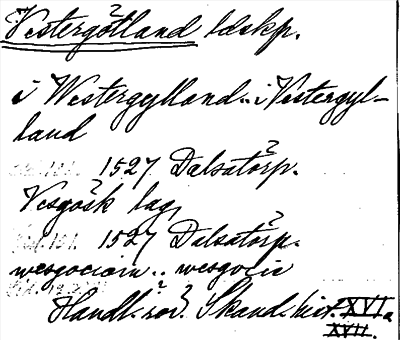 Vestergötland ldskp.
i Westergylland.. i Vestergyl-
land
1527 Dalsatorp.
Vesgösk lag
Sid. 181. 1527 Dalsatorp.
wesgociam .. wesgocie
Handl. rör. Skand. hist. XVI a
XVII.